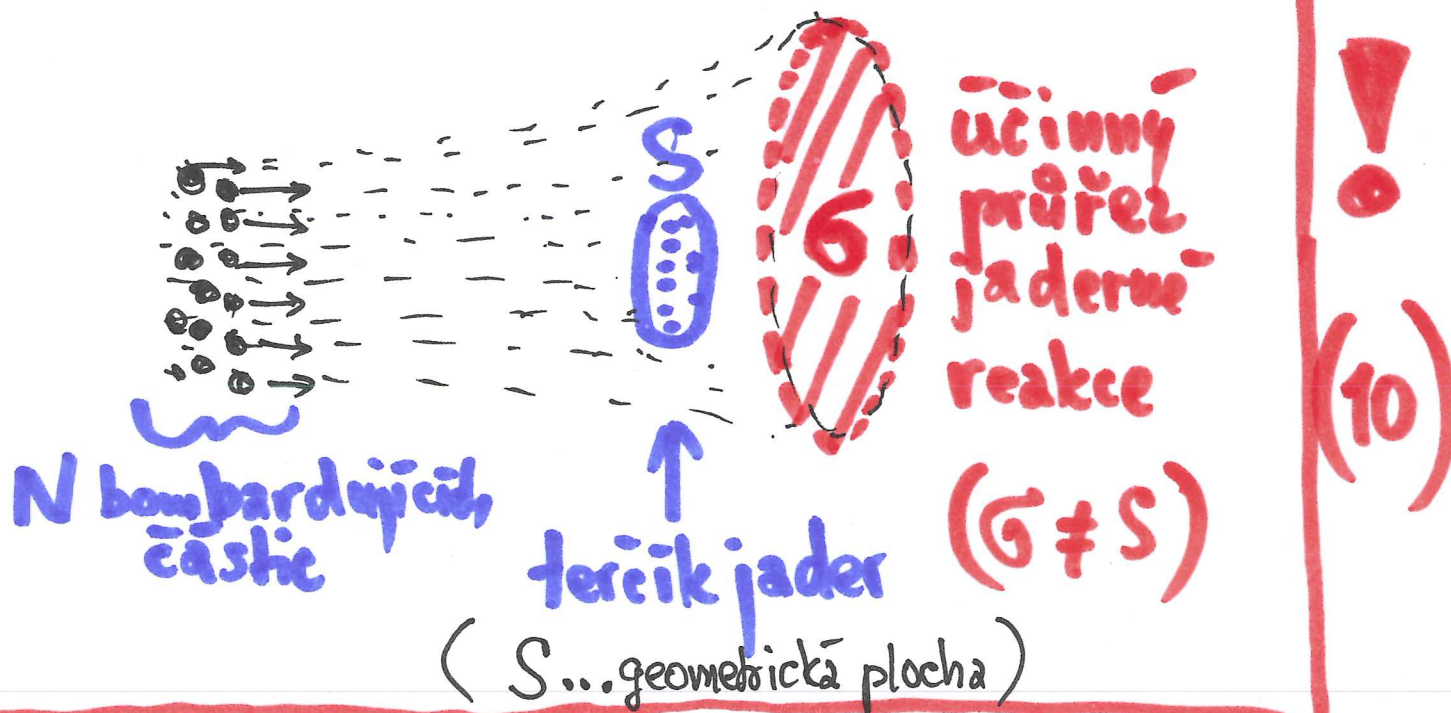 S
σ
účinný
průřez
jaderné
reakce
(σ ≠ S)
N bombardujících
částic
terčík jader
(S...geometrická plocha)
!
(10)